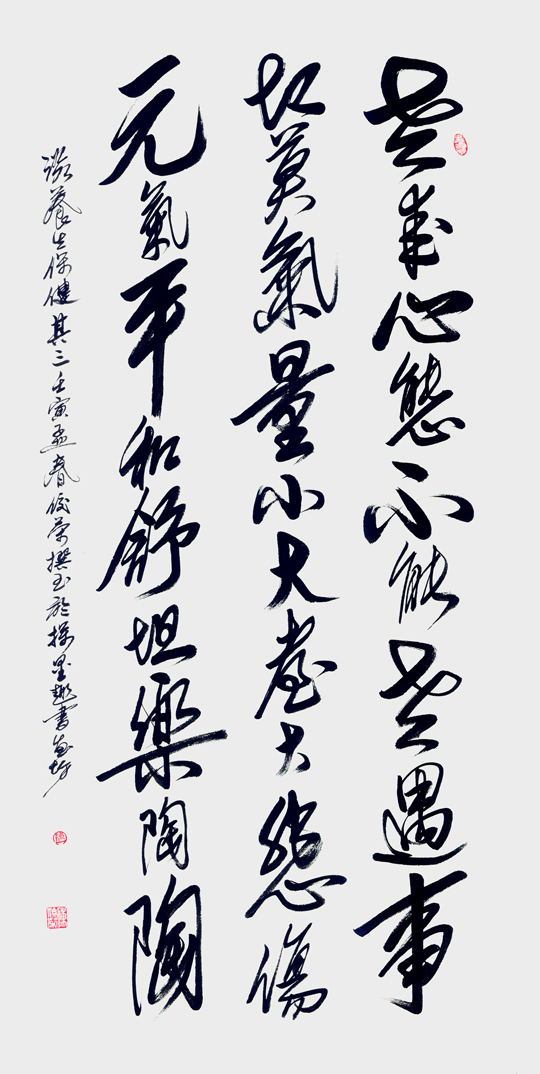 老年心態不能老遇事
切莫氣量小大喜大怒傷
元氣平和舒坦樂陶陶
養生保健其三壬寅孟春撰書於墨趣書畫坊